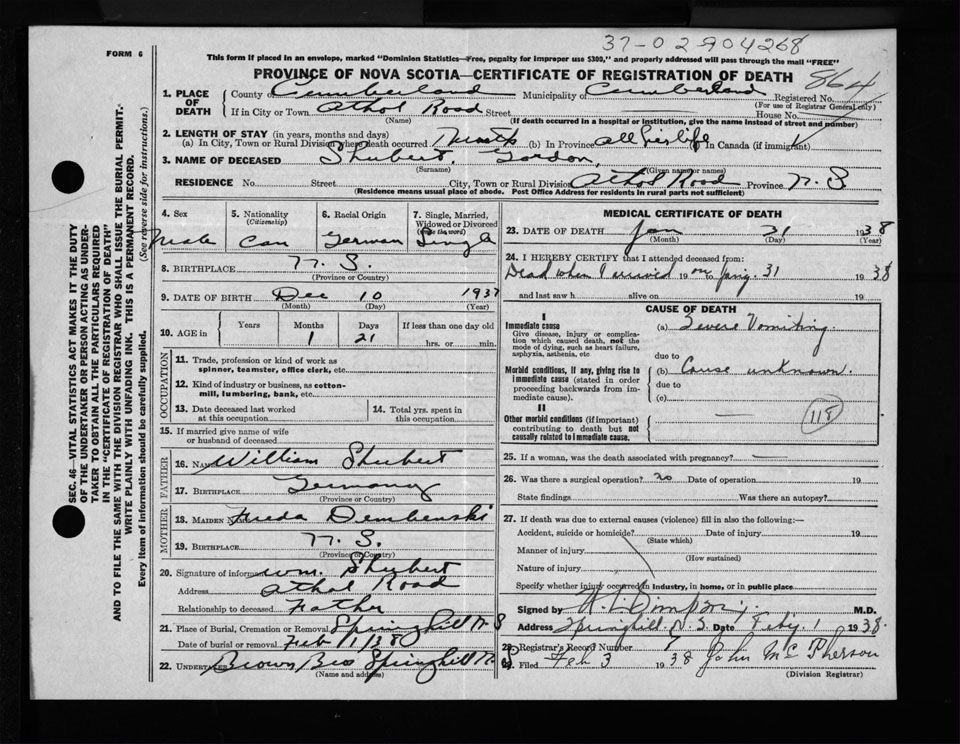 37-02-904268
FORM 6
This form if placed in an envelope, marked "Dominion Statistics—Free, penalty for improper use $300," and properly addressed will pass through the mail "FREE"
PROVINCE OF NOVA SCOTIA—CERTIFICATE OF REGISTRATION OF DEATH
864
1. PLACE OF DEATH County of Cumberland Municipality of Cumberland Registered No.
(For use of Registrar General only)
If in City or Town Athol Road Street House No.
(Name) (If death occurred in a hospital or institution, give the name instead of street and number)
2. LENGTH OF STAY (in years, months and days)
(a) In City, Town or Rural Division where death occurred (b) In Province all his life In Canada (if immigrant)
3. NAME OF DECEASED Shubert, Gordon,
(Surname) (Given name or names)
RESIDENCE No. Street City, Town or Rural Division Athol Road Province N. S
(Residence means usual place of abode. Post Office Address for residents in rural parts not sufficient)
4. Sex
Male
5. Nationality
(Citizenship)
Can
6. Racial Origin
German
7. Single, Married, Widowed or Divorced
(write the word)
Single
8. BIRTHPLACE N. S.
(Province or Country)
9. DATE OF BIRTH Dec 10 1937
(Month) (Day) (Year)
10. AGE in
Years Months Days If less than one day old
1 21 hrs. or min.
OCCUPATION
11. Trade, profession or kind of work as
spinner, teamster, office clerk, etc.
12. Kind of industry or business, as cotton-
mill, lumbering, bank, etc.
13. Date deceased last worked
at this occupation
14. Total yrs. spent in
this occupation
15. If married give name of wife
or husband of deceased
FATHER
16. NAME William Shubert
17. BIRTHPLACE Germany
(Province or Country)
MOTHER
18. MAIDEN NAME Freda Dembenski
19. BIRTHPLACE N. S.
(Province or Country)
20. Signature of informant Wm. Shubert
Address Athol Road
Relationship to deceased Father
21. Place of Burial, Cremation or Removal Springhill N S
Date of burial or removal Feb 1 1938
22. UNDERTAKER Brown Bro Springhill N.
(Name and address)
MEDICAL CERTIFICATE OF DEATH
23. DATE OF DEATH Jan 31 1938
(Month) (Day) (Year)
24. I HEREBY CERTIFY that I attended deceased from:
Dead when I arrived 19 on Jany. 31 1938
and last saw h alive on 19
CAUSE OF DEATH
I
Immediate cause
Give disease, injury or complica-
tion which caused death, not the
mode of dying, such as heart failure,
asphyxia, asthenia, etc
(a) Severe Vomiting
due to
Morbid conditions, if any, giving rise to
immediate cause (stated in order
proceeding backwards from im-
mediate cause).
(b) Cause unknown.
due to
(c)
II
Other morbid conditions (if important)
contributing to death but not
causally related to immediate cause.
118
25. If a woman, was the death associated with pregnancy?
26. Was there a surgical operation? no Date of operation 19
State findings Was there an autopsy?
27. If death was due to external causes (violence) fill in also the following:—
Accident, suicide or homicide? Date of injury 19
(State which)
Manner of injury
(How sustained)
Nature of injury
Specify whether injury occurred in industry, in home, or in public place
Signed by M.D.
Address Springhill, N.S. Date Feby. 1 1938.
28. Registrar's Record Number 7
Filed Feb 3 1938 John McPherson
(Division Registrar)
SEC. 46—VITAL STATISTICS ACT MAKES IT THE DUTY
OF THE UNDERTAKER OR PERSON ACTING AS UNDER-
TAKER TO OBTAIN ALL THE PARTICULARS REQUIRED
IN THE "CERTIFICATE OF REGISTRATION OF DEATH"
AND TO FILE THE SAME WITH THE DIVISION REGISTRAR WHO SHALL ISSUE THE BURIAL PERMIT.
WRITE PLAINLY WITH UNFADING INK. THIS IS A PERMANENT RECORD.
Every item of information should be carefully supplied. (See reverse side for instructions.)